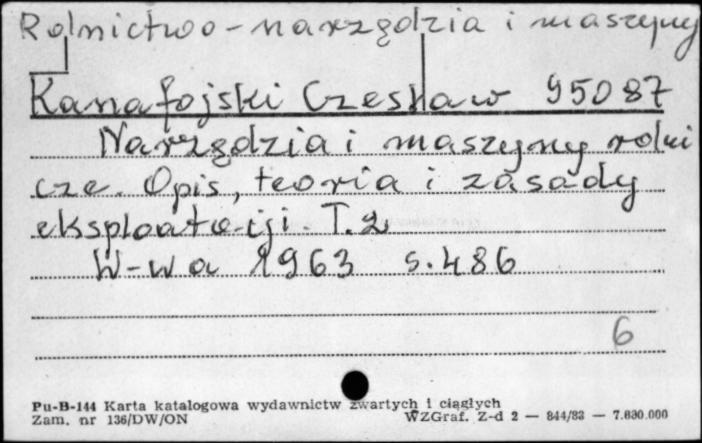 Rolnictwo - narzędzia i maszyny
Kanafojski Czesław 95087
Narzędzia i maszyny rolni
cze. Opis, teoria i zasady
eksploatacji. T. 2
W-wa 1963 s. 486
6
Pu-B-144 Karta katalogowa wydawnictw zwartych i ciągłych
Zam. nr 136/DW/ON WZGraf. Z-d 2 — 844/83 — 7.830.000